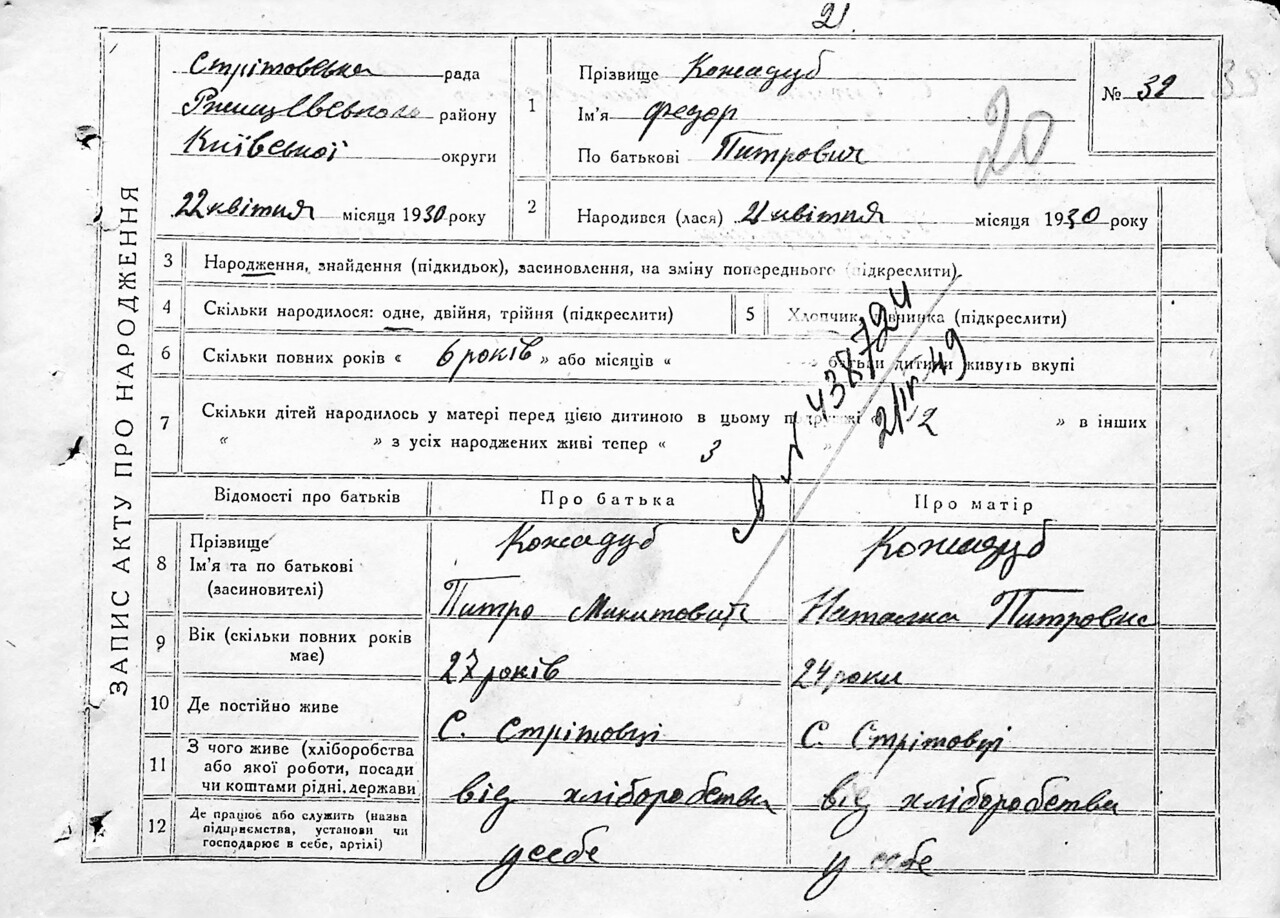 21.
ЗАПИС АКТУ ПРО НАРОДЖЕННЯ
Стрітовська рада
Ржищевського району
Київської округи
22 квітня місяця 1930 року
1
Прізвище Кожадуб
Ім'я федор
По батькові Питрович
№ 32
20
2
Народився (лася) 21 квітня місяця 1930 року
3 Народження, знайдення (підкидьок), засиновлення, на зміну попереднього (підкреслити).
4 Скільки народилося: одне, двійня, трійня (підкреслити)
5 Хлопчик, дівчинка (підкреслити)
6 Скільки повних років « 6 років » або місяців « » батьки дитини живуть вкупі
7 Скільки дітей народилось у матері перед цією дитиною в цьому подружжі « 2 » в інших
« » з усіх народжених живі тепер « 3 »
21/IV-49
Відомості про батьків Про батька Про матір
8 Прізвище Ім'я та по батькові (засиновителі)
Кожадуб Кожадуб
Питро Микитович Наталка Питровна
9 Вік (скільки повних років має)
27 років 24 роки
10 Де постійно живе
С. Стрітовці С. Стрітовці
11 З чого живе (хліборобства або якої роботи, посади чи коштами рідні, держави
від хліборобства від хліборобства
12 Де працює або служить (назва підприємства, установи чи господарює в себе, артілі)
у себе у себе